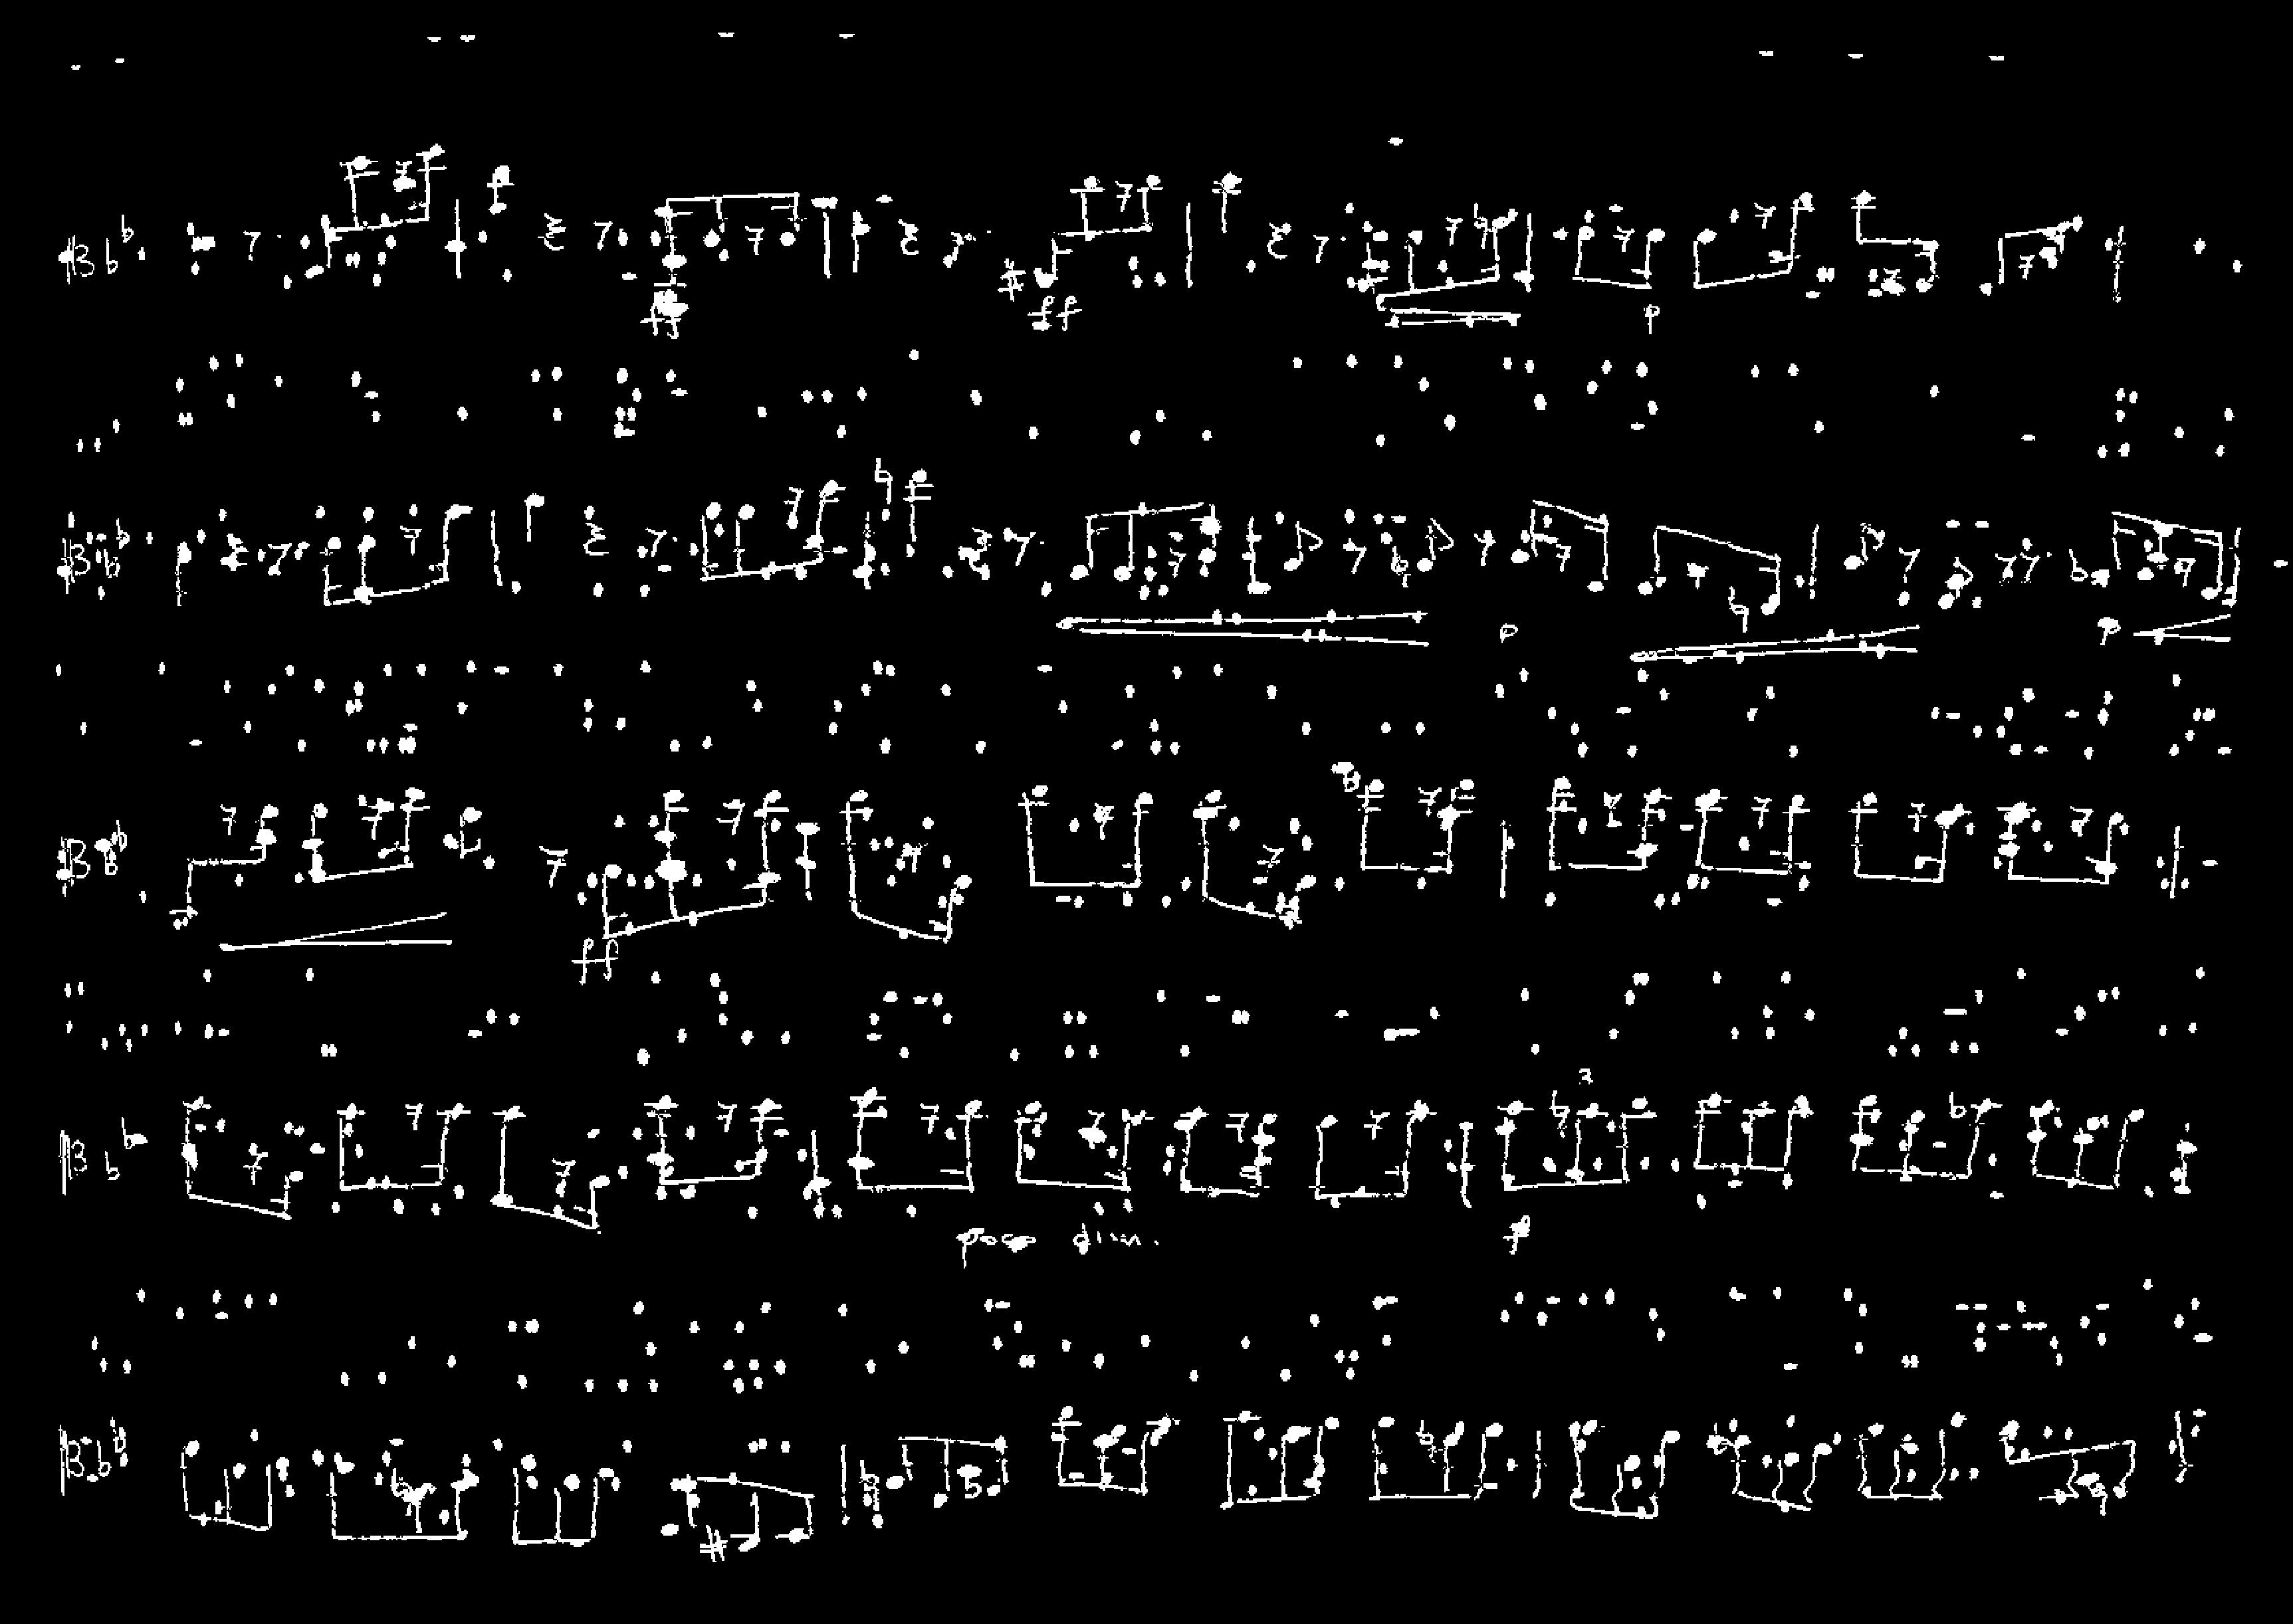 ff
ff
p
p
p
ff
3
poco dim.
p